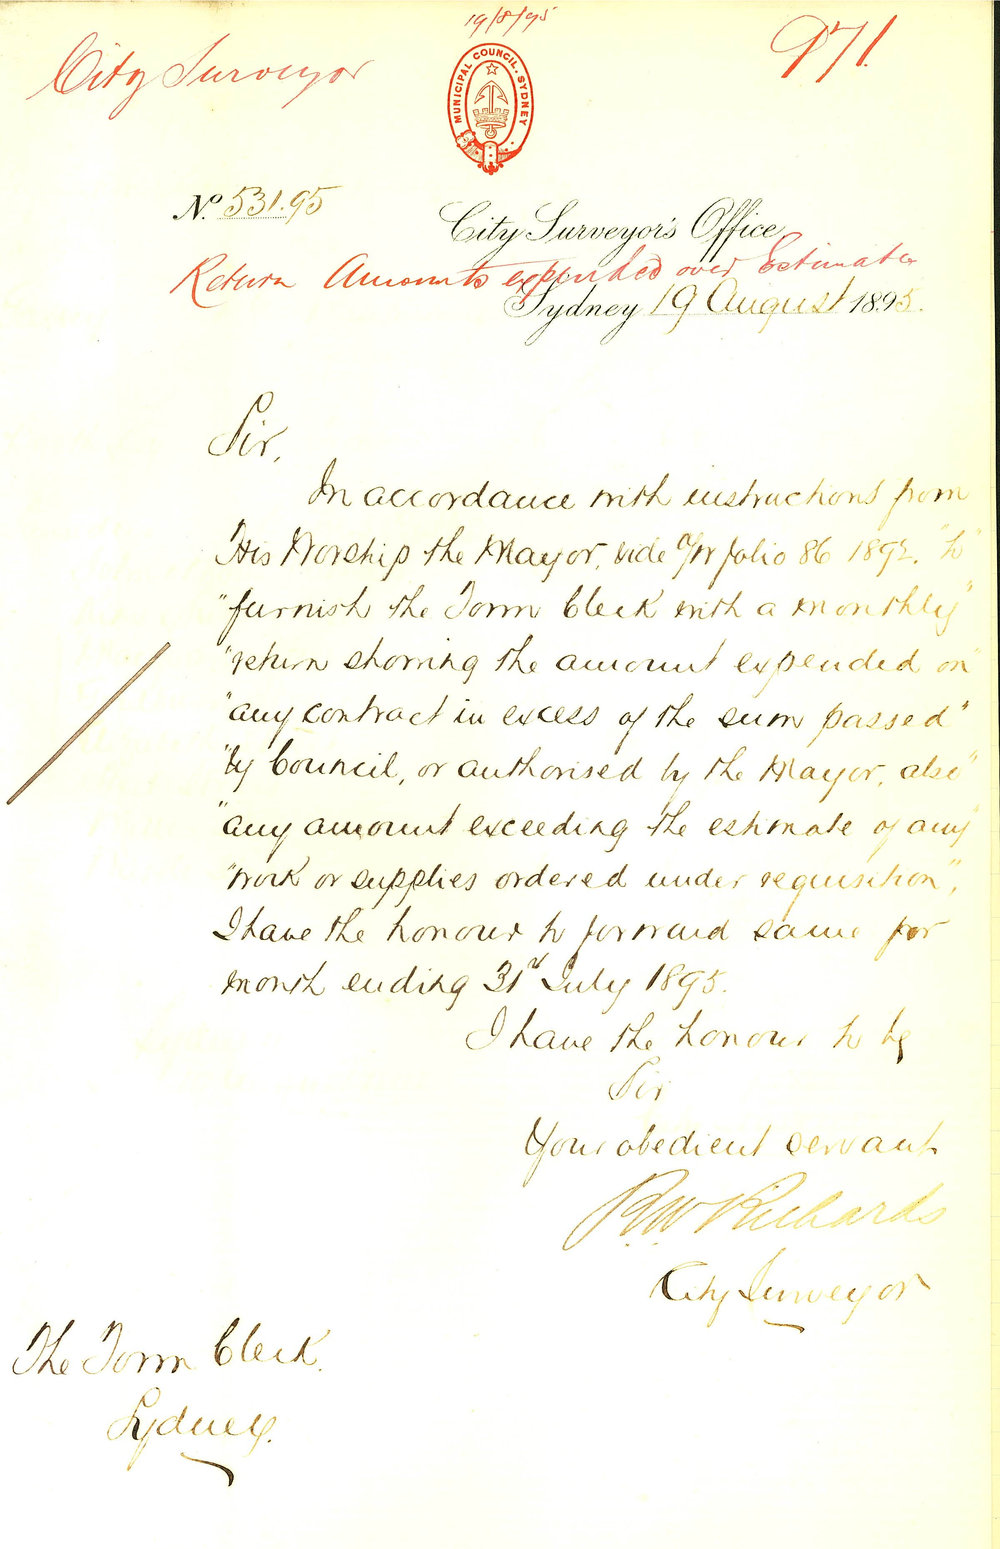 19/8/95
City Surveyor
971.
MUNICIPAL COUNCIL. SYDNEY
No. 531.95
City Surveyor's Office
Return Amounts expended over Estimates
Sydney 19 August 1895.
Sir,
In accordance with instructions from
His Worship the Mayor, vide folio 86 1892. "to"
"furnish the Town Clerk with a monthly"
"return showing the amount expended on"
"any contract in excess of the sum passed"
"by Council, or authorised by the Mayor, also"
"any amount exceeding the estimate of any"
"work or supplies ordered under requisition",
I have the honour to forward same for
month ending 31st July 1895.
I have the honour to be
Sir
Your obedient servant
R.W. Richards
City Surveyor
The Town Clerk.
Sydney.